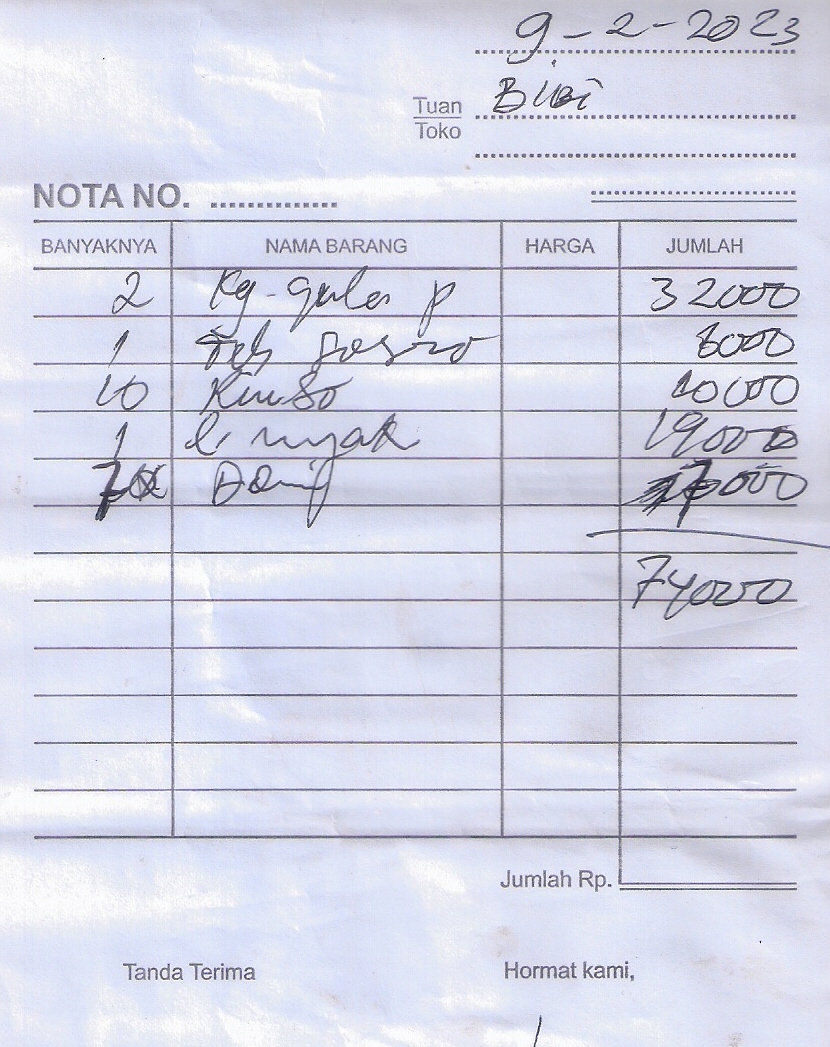 9-2-2023
Tuan Bibi
Toko
NOTA NO. ..............
BANYAKNYA NAMA BARANG HARGA JUMLAH
2 Kg-gula p 32000
1 Teh Sosro 6000
10 Rinso 10000
1 l. minyak 19000
Daia 7000
74000
Jumlah Rp.
Tanda Terima Hormat kami,